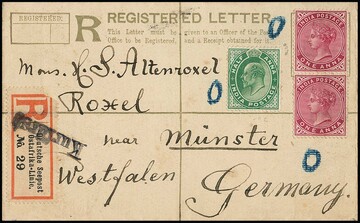 REGISTERED LETTER.
REGISTERED.
R
This Letter must be given to an Officer of the Post
Office to be Registered, and a Receipt obtained for it.
Mons. H. S. Altenroxel
Roxel
near Münster
Westfalen
Germany.
HALF ANNA
INDIA POSTAGE
INDIA POSTAGE
ONE ANNA
INDIA POSTAGE
ONE ANNA
R
Deutsche Seepost
Ostafrika-Linie.
№ 29